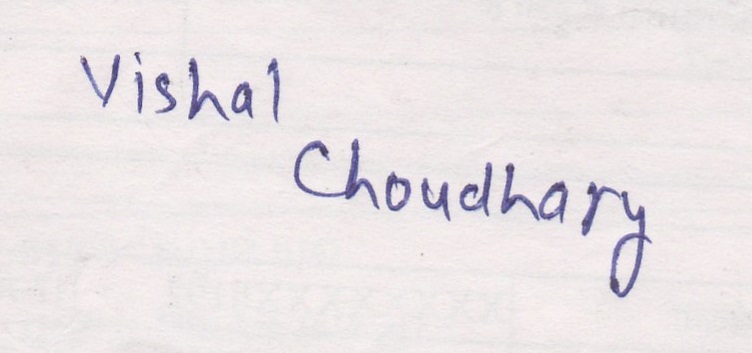 Vishal
Choudhary